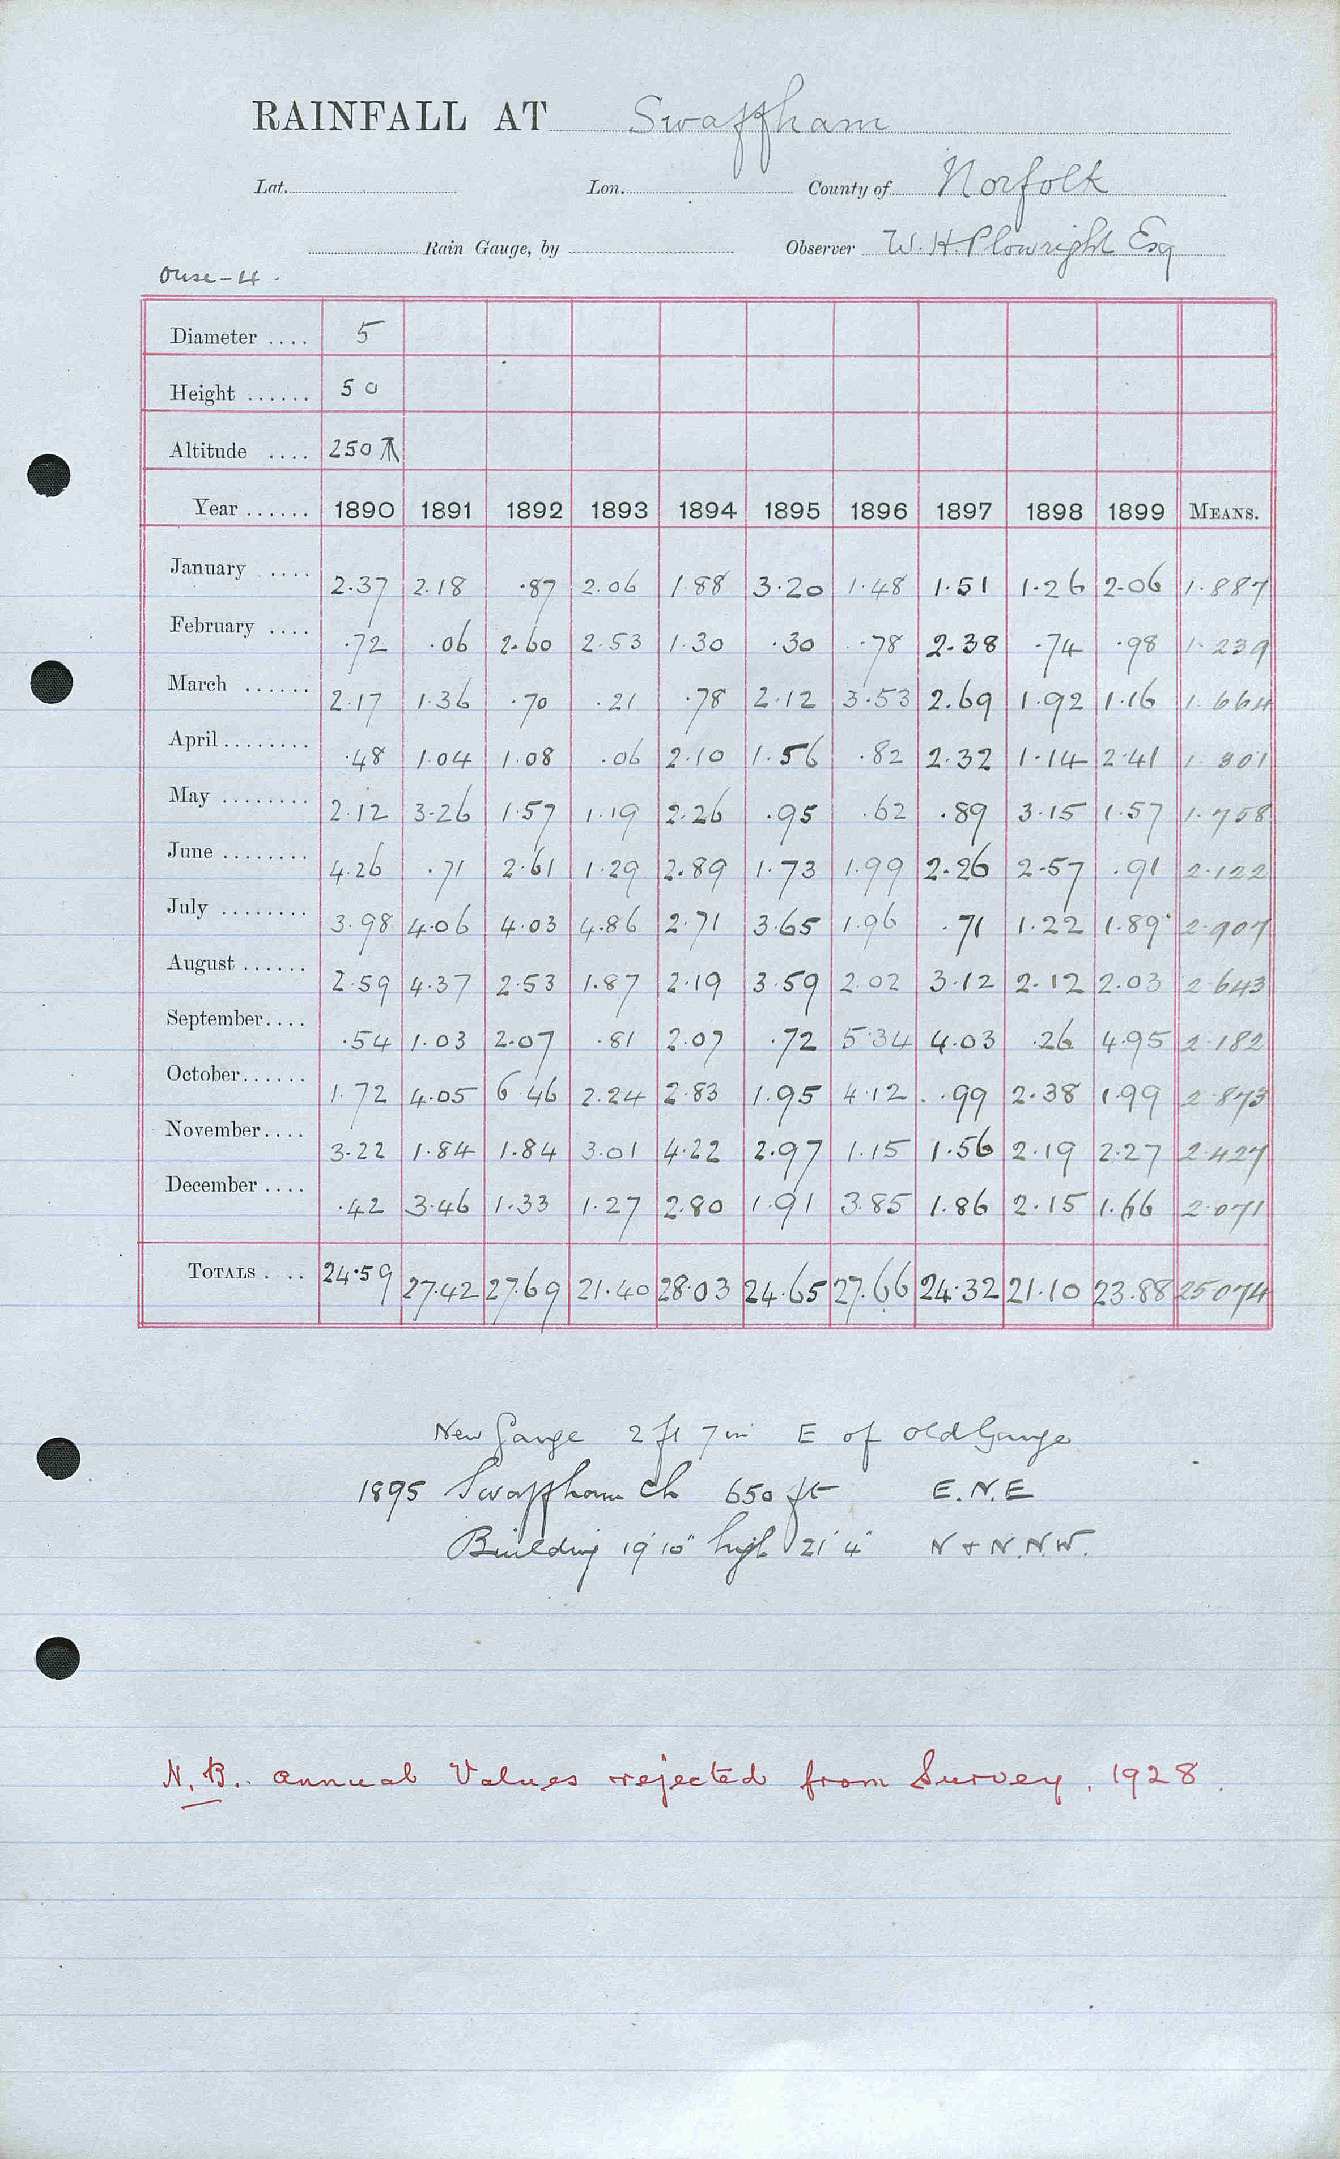 RAINFALL AT Swaffham
Lat. Lon. County of Norfolk
Rain Gauge, by Observer W. H. Plowright Esq
Ouse - 4.
Diameter .... 5
Height ...... 5 0
Altitude .... 250
Year ...... 1890 1891 1892 1893 1894 1895 1896 1897 1898 1899 MEANS.
January .... 2.37 2.18 .87 2.06 1.88 3.20 1.48 1.51 1.26 2.06 1.887
February .... .72 .06 2.60 2.53 1.30 .30 .78 2.38 .74 .98 1.239
March ...... 2.17 1.36 .70 .21 .78 2.12 3.53 2.69 1.92 1.16 1.664
April ........ .48 1.04 1.08 .06 2.10 1.56 .82 2.32 1.14 2.41 1.301
May ........ 2.12 3.26 1.57 1.19 2.26 .95 .62 .89 3.15 1.57 1.758
June ........ 4.26 .71 2.61 1.29 2.89 1.73 1.99 2.26 2.57 .91 2.122
July ........ 3.98 4.06 4.03 4.86 2.71 3.65 1.96 .71 1.22 1.89 2.907
August ...... 2.59 4.37 2.53 1.87 2.19 3.59 2.02 3.12 2.12 2.03 2.643
September.... .54 1.03 2.07 .81 2.07 .72 5.34 4.03 .26 4.95 2.182
October...... 1.72 4.05 6.46 2.24 2.83 1.95 4.12 .99 2.38 1.99 2.873
November.... 3.22 1.84 1.84 3.01 4.22 2.97 1.15 1.56 2.19 2.27 2.427
December .... .42 3.46 1.33 1.27 2.80 1.91 3.85 1.86 2.15 1.66 2.071
TOTALS .... 24.59 27.42 27.69 21.40 28.03 24.65 27.66 24.32 21.10 23.88 25.074
New Gauge 2 ft 7 in E of old Gauge
1895 Swaffham Ch 650 ft E.N.E
Building 19' 10" high 21' 4" N + N.N.W.
N.B. annual Values rejected from Survey, 1928.